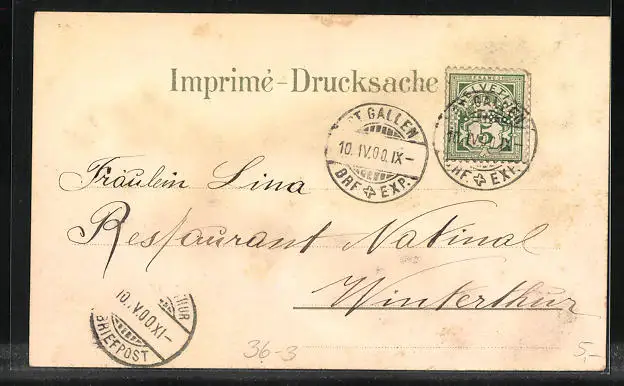 Imprimé-Drucksache
FRANCO
HELVETIA
5
ST. GALLEN
10.IV.00.IX–
BRF. EXP.
ST. GALLEN
10.IV.00.IX–
BRF. EXP.
Fräulein Lina
Restaurant Natinal
Winterthur
10.IV.00.XI–
BRIEFPOST
36-3
5,–